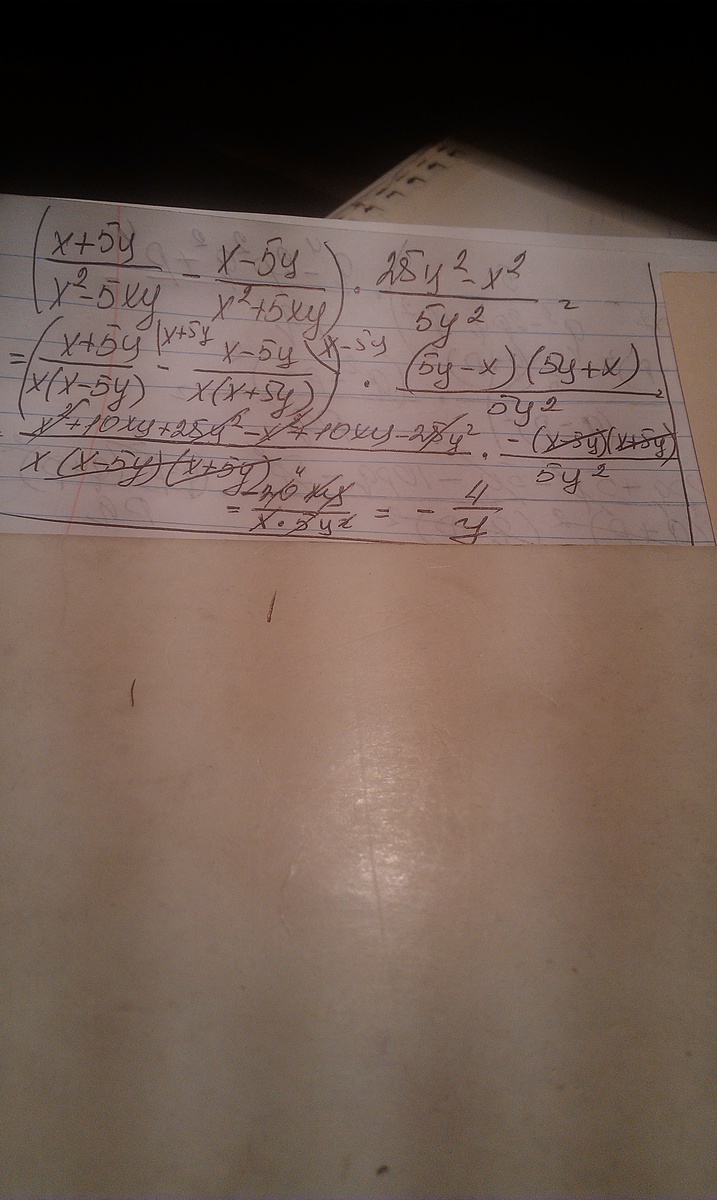 (x+5y/x²-5xy - x-5y/x²+5xy) · 25y²-x²/5y² =
= (x+5y/x(x-5y) |x+5y - x-5y/x(x+5y) \x-5y) · (5y-x)(5y+x)/5y²
x²+10xy+25y²-x²+10xy-25y²/x(x-5y)(x+5y) · -(x-5y)(x+5y)/5y²
= -20 4 xy/x·5y² = - 4/y